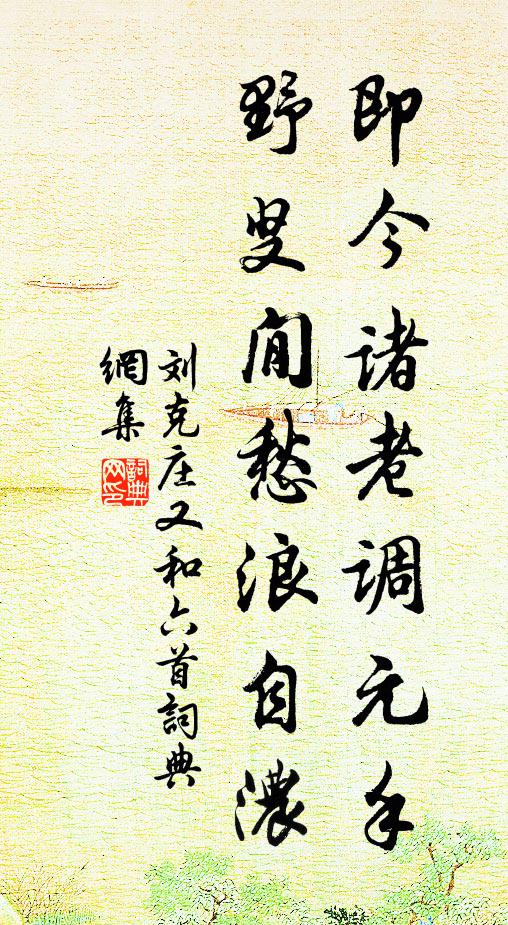 即今诸老调元手
野叟闲愁浪自浓
刘克庄又和六首詞典
網集
詞典
网印